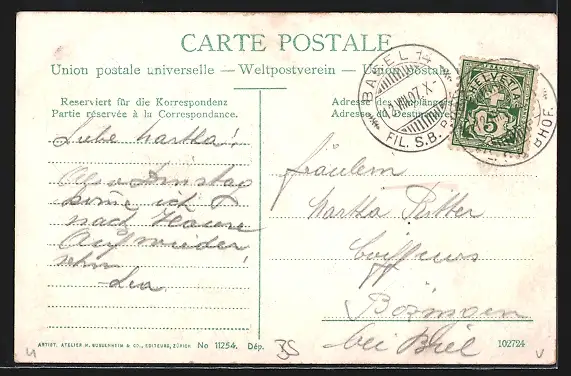 CARTE POSTALE
Union postale universelle — Weltpostverein — Union postale
Reserviert für die Korrespondenz
Partie réservée à la Correspondance.
Adresse des Empfängers
Adresse du Destinataire
BASEL 14
12.VIII.07.X-
FIL. S.B. BHOF.
HELVETIA
5
Liebe Martha!
Also Dinstag
komme ich
nach Hause
Auf wieder
sehn!
Lea
Fräulein
Martha Ritter
Coiffeurs
Bözingen
bei Biel
ARTIST. ATELIER H. GUGGENHEIM & CO., EDITEURS, ZÜRICH No 11254. Dép.
102724